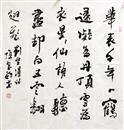 華表千年一鶴
歸凝丹為頂雪為
衣星星仙語人聽
盡却向五雲翻
翅飛